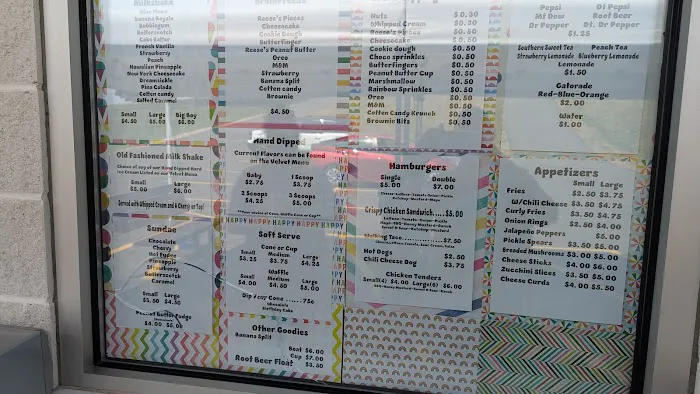 Milkshake
Blue Moon
Banana Royale
Bubblegum
Butterscotch
Cake Batter
French Vanilla
Strawberry
Peach
Hawaiian Pineapple
New York Cheesecake
Dreamsickle
Pina Colada
Cotton candy
Salted Caramel
Small Large Big Boy
$4.50 $5.00 $6.00
Old Fashioned Milk Shake
Choice of any of our Hand Dipped Hard
Ice Cream Listed on our Velvet Menu
Small Large
$5.00 $6.00
Served with Whipped Cream and A Cherry on Top!
Sundae
Chocolate
Cherry
Hot Fudge
Pineapple
Strawberry
Butterscotch
Caramel
Small Large
$3.50 $4.50
Peanut Butter Fudge
$4.00 $5.00
Reese's Pieces
Cheesecake
Cookie Dough
Butterfinger
Reese's Peanut Butter
Oreo
M&M
Strawberry
Banana Split
Cotton candy
Brownie
$4.50
Hand Dipped
Current Flavors can be Found
on the Velvet Menu
Baby 1 Scoop
$2.75 $3.75
2 Scoops 3 Scoops
$4.25 $5.00
HAPPY HAPPY HAPPY HAPPY HAPPY
Soft Serve
Cone or Cup
Small Medium Large
$3.25 $3.75 $4.25
Waffle
Small Medium Large
$4.00 $4.50 $5.00
Dip Any Cone ...... 75¢
Chocolate
Birthday Cake
Other Goodies
Banana Split
Boat $6.00
Cup $7.00
Root Beer Float $3.50
Nuts $0.30
Whipped Cream $0.30
Reese's Pieces $0.50
Cheesecake $0.50
Cookie dough $0.50
Choco sprinkles $0.50
Butterfingers $0.50
Peanut Butter Cup $0.50
Marshmallow $0.50
Rainbow Sprinkles $0.50
Oreo $0.50
M&M $0.50
Cotton Candy Krunch $0.50
Brownie Bits $0.50
Hamburgers
Single Double
$5.00 $7.00
Cheese-Lettuce-Tomato-Onion-Pickle
Ketchup-Mustard-Mayo
Crispy Chicken Sandwich....$5.00
Lettuce-Tomato-Onion-Pickle
Walking Taco...............$7.50
Hot Dogs $2.50
Chili Cheese Dog $3.75
Chicken Tenders
Small(4) $4.00 Large(6) $6.00
Pepsi Dt Pepsi
Mt Dew Root Beer
Dr Pepper Dt. Dr Pepper
$1.25
Southern Sweet Tea Peach Tea
Strawberry Lemonade Blueberry Lemonade
Lemonade
$1.50
Gatorade
Red-Blue-Orange
$2.00
Water
$1.00
Appetizers
Small Large
Fries $2.50 $3.75
W/Chili Cheese $3.50 $4.75
Curly Fries $3.50 $4.75
Onion Rings $2.50 $4.00
Jalapeño Poppers $5.00
Pickle Spears $3.50 $5.00
Breaded Mushrooms $3.00 $5.00
Cheese Sticks $4.00 $6.00
Zucchini Slices $3.50 $5.50
Cheese Curds $4.00 $5.50